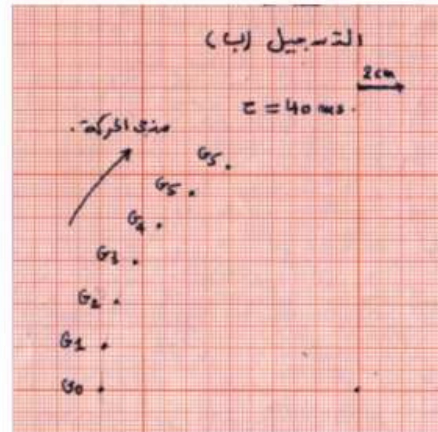 التسجيل (ب)
2 cm
τ = 40 ms.
منحى الحركة.
G5
G5
G4
G3
G2
G1
G0